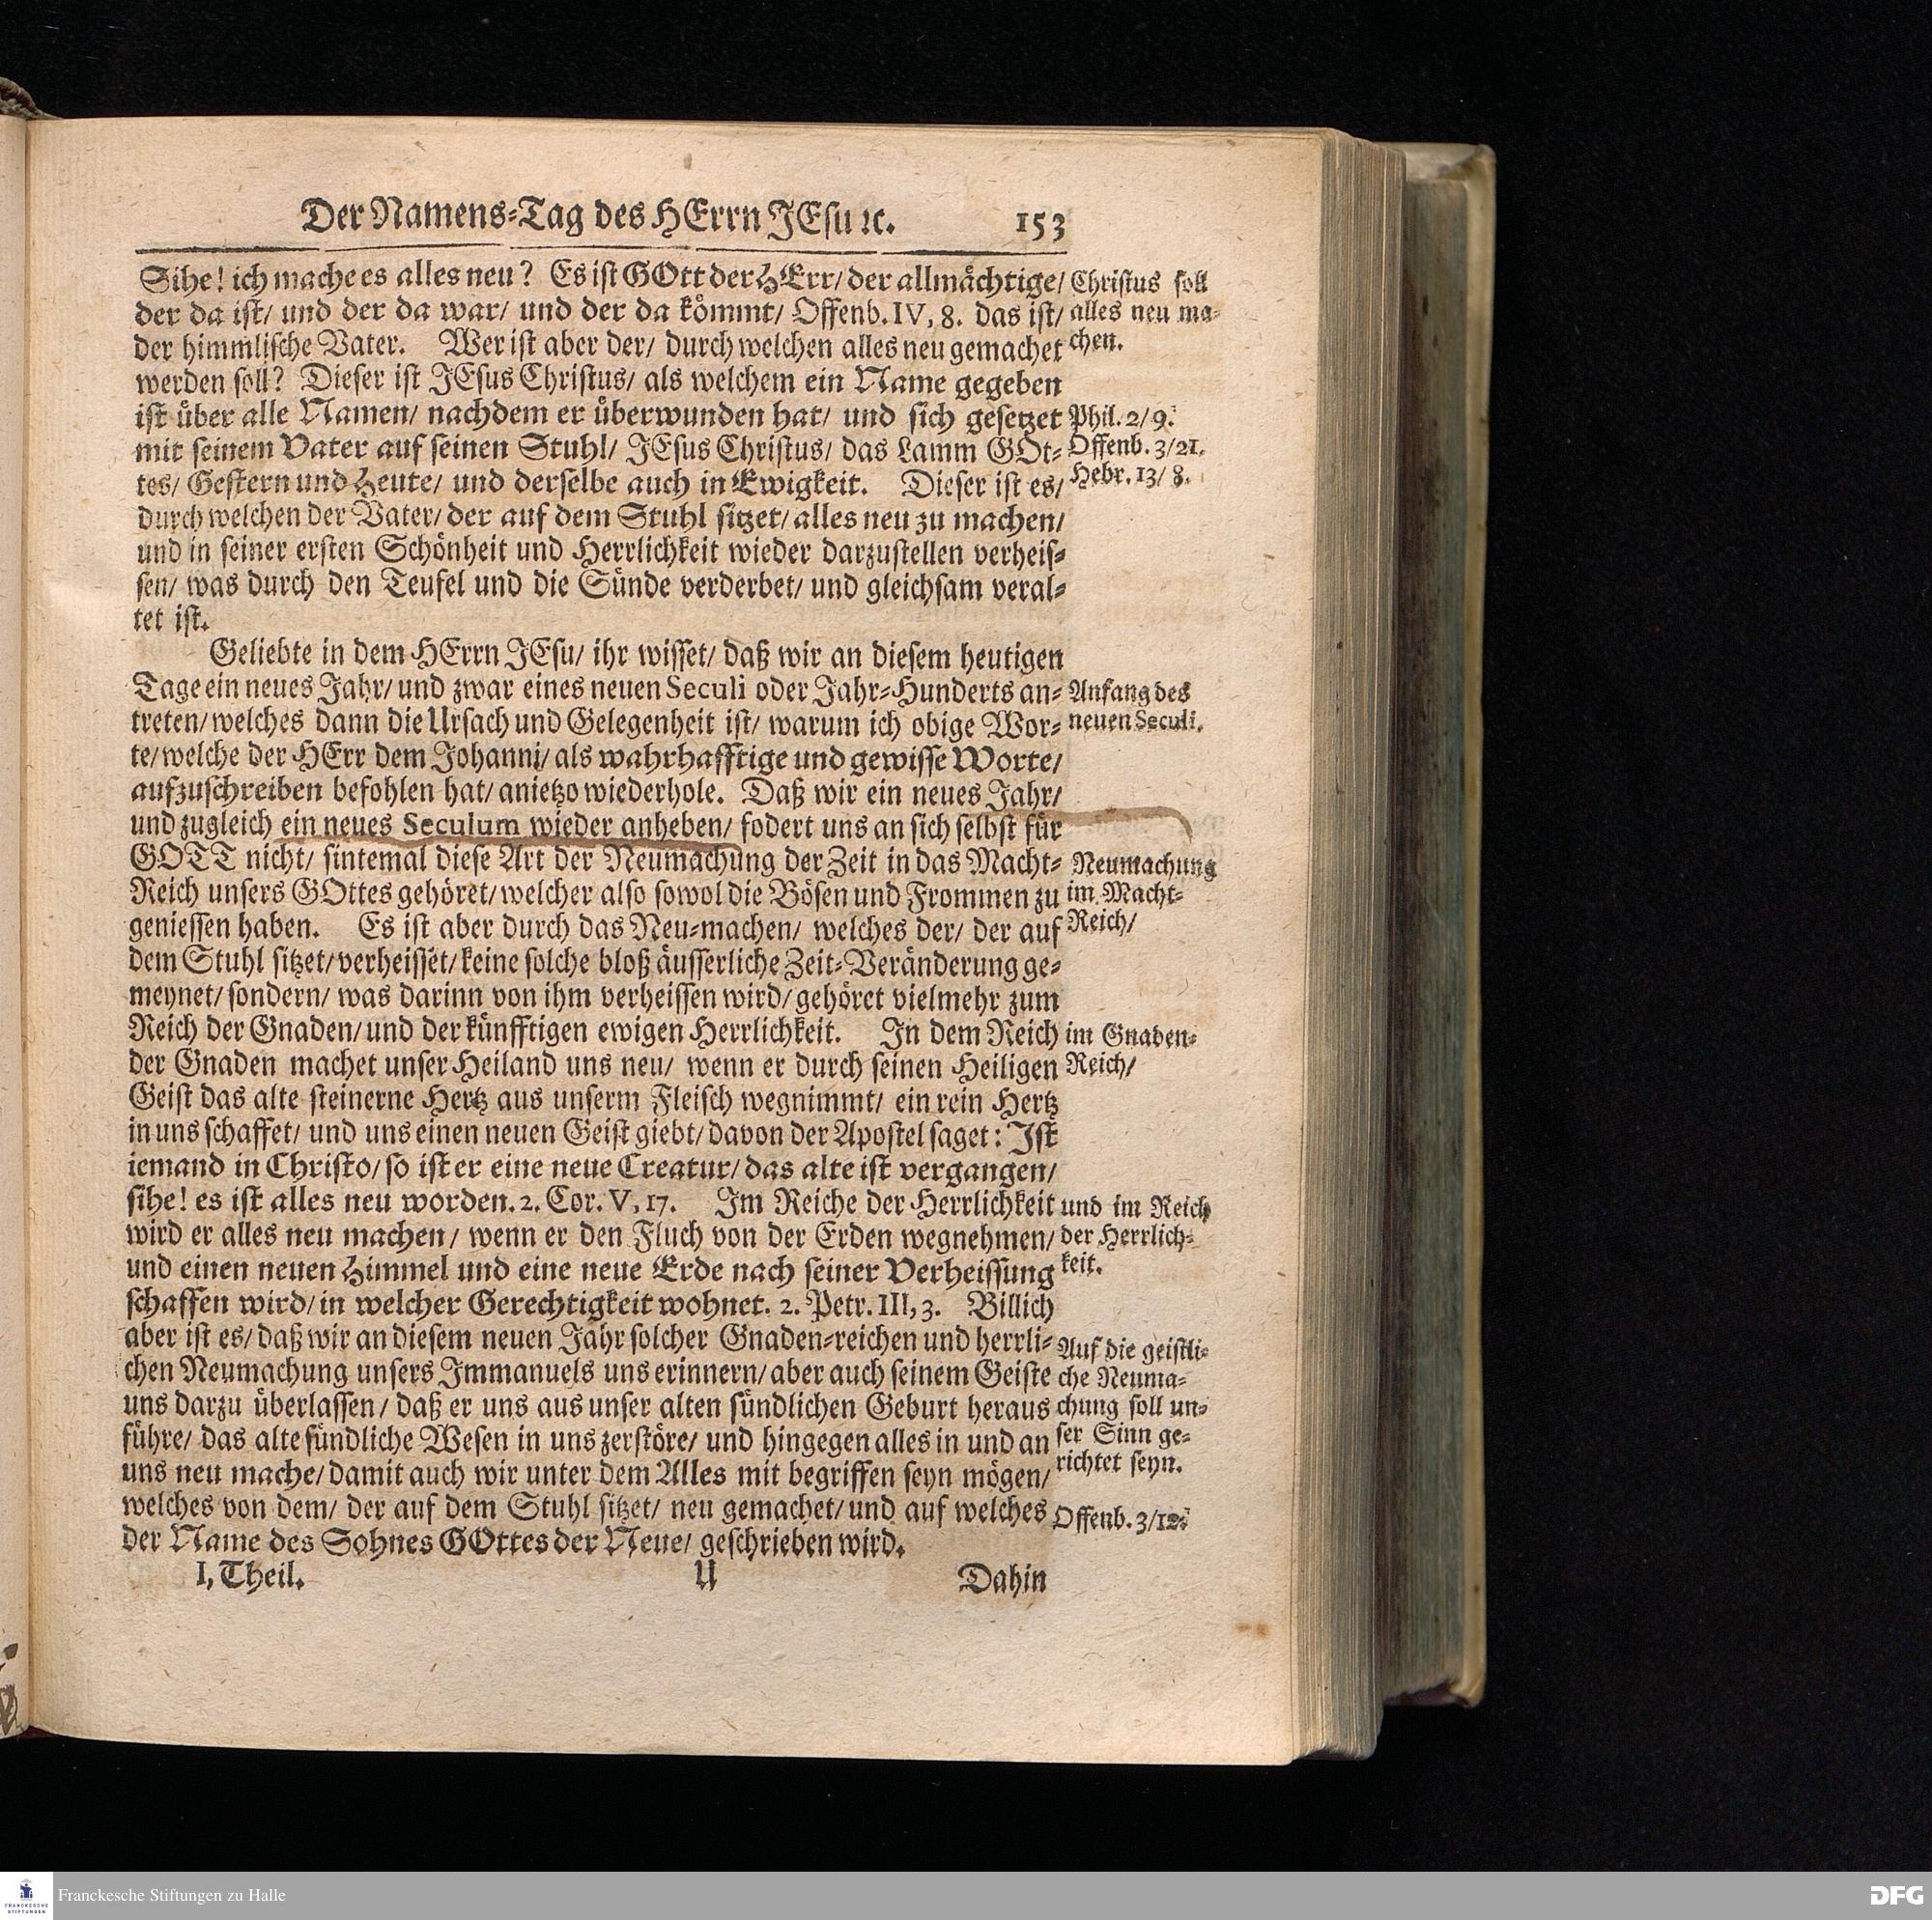 Der Namens-Tag des HErrn JEsu ꝛc. 153
Sihe! ich mache es alles neu? Es ist GOtt der HErr/ der allmächtige/
der da ist/ und der da war/ und der da kömmt/ Offenb. IV, 8. das ist/
der himmlische Vater. Wer ist aber der/ durch welchen alles neu gemachet
werden soll? Dieser ist JEsus Christus/ als welchem ein Name gegeben
ist über alle Namen/ nachdem er überwunden hat/ und sich gesetzet
mit seinem Vater auf seinen Stuhl/ JEsus Christus/ das Lamm GOt-
tes/ Gestern und Heute/ und derselbe auch in Ewigkeit. Dieser ist es/
durch welchen der Vater/ der auf dem Stuhl sitzet/ alles neu zu machen/
und in seiner ersten Schönheit und Herrlichkeit wieder darzustellen verheis-
sen/ was durch den Teufel und die Sünde verderbet/ und gleichsam veral-
tet ist.
Geliebte in dem HErrn JEsu/ ihr wisset/ daß wir an diesem heutigen
Tage ein neues Jahr/ und zwar eines neuen Seculi oder Jahr-Hunderts an-
treten/ welches dann die Ursach und Gelegenheit ist/ warum ich obige Wor-
te/ welche der HErr dem Johanni/ als wahrhafftige und gewisse Worte/
aufzuschreiben befohlen hat/ anietzo wiederhole. Daß wir ein neues Jahr/
und zugleich ein neues Seculum wieder anheben/ fodert uns an sich selbst für
GOTT nicht/ sintemal diese Art der Neumachung der Zeit in das Macht-
Reich unsers GOttes gehöret/ welcher also sowol die Bösen und Frommen zu
geniessen haben. Es ist aber durch das Neu-machen/ welches der/ der auf
dem Stuhl sitzet/ verheisset/ keine solche bloß äusserliche Zeit-Veränderung ge-
meynet/ sondern/ was darinn von ihm verheissen wird/ gehöret vielmehr zum
Reich der Gnaden/ und der künfftigen ewigen Herrlichkeit. In dem Reich
der Gnaden machet unser Heiland uns neu/ wenn er durch seinen Heiligen
Geist das alte steinerne Hertz aus unserm Fleisch wegnimmt/ ein rein Hertz
in uns schaffet/ und uns einen neuen Geist giebt/ davon der Apostel saget: Ist
iemand in Christo/ so ist er eine neue Creatur/ das alte ist vergangen/
sihe! es ist alles neu worden. 2. Cor. V, 17. Im Reiche der Herrlichkeit
wird er alles neu machen/ wenn er den Fluch von der Erden wegnehmen/
und einen neuen Himmel und eine neue Erde nach seiner Verheissung
schaffen wird/ in welcher Gerechtigkeit wohnet. 2. Petr. III, 3. Billich
aber ist es/ daß wir an diesem neuen Jahr solcher Gnaden-reichen und herrli-
chen Neumachung unsers Immanuels uns erinnern/ aber auch seinem Geiste
uns darzu überlassen/ daß er uns aus unser alten sündlichen Geburt heraus
führe/ das alte sündliche Wesen in uns zerstöre/ und hingegen alles in und an
uns neu mache/ damit auch wir unter dem Alles mit begriffen seyn mögen/
welches von dem/ der auf dem Stuhl sitzet/ neu gemachet/ und auf welches
der Name des Sohnes GOttes der Neue/ geschrieben wird.
I. Theil. U Dahin
Christus soll
alles neu ma-
chen.
Phil. 2/9.
Offenb. 3/21.
Hebr. 13/ 8.
Anfang des
neuen Seculi.
Neumachung
im Macht-
Reich/
im Gnaden-
Reich/
und im Reich
der Herrlich-
keit.
Auf die geistli-
che Neuma-
chung soll un-
ser Sinn ge-
richtet seyn.
Offenb. 3/12.
FRANCKESCHE
STIFTUNGEN
Franckesche Stiftungen zu Halle
DFG